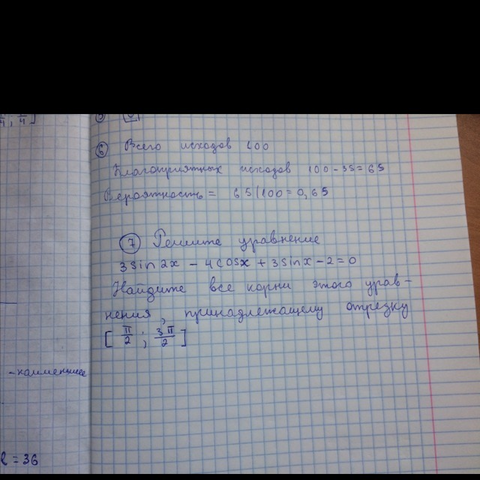 6 Всего исходов 100
Благоприятных исходов 100-35=65
Вероятность = 65/100=0,65
7 Решите уравнение
3sin2x - 4cosx + 3sinx - 2 = 0
Найдите все корни этого урав-
нения, принадлежащему отрезку
[π/2 ; 3π/2]
-наименьшее
l = 36